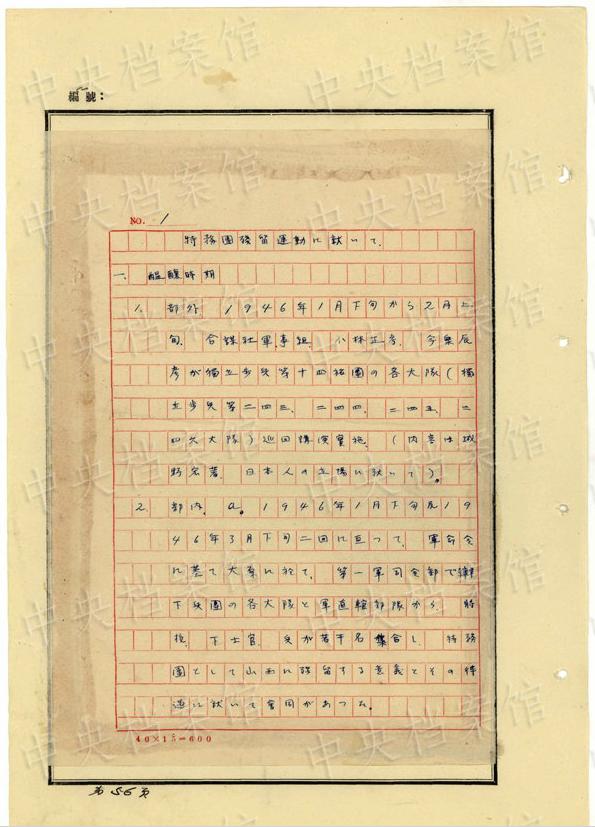 編號：
NO. 1
特務團殘留運動に就いて．
一． 醞釀時期
1． 部外． 1946年1月下旬から2月上
旬． 合謀社軍事組． 小林 今 辰
彦が独立歩兵第十四旅團の各大隊（独
立歩兵第二四三． 二四四． 二四五． 二
四六大隊）巡回講演實施．（内容は城
野宏著． 日本人の立場に就いて）。
2． 部内． a． 1946年1月下旬及19
46年3月下旬二回に亘って． 軍命令
に基て太原に於て． 第一軍司令部で
下兵團の各大隊と軍直轄部隊から． 將
校． 下士官． 兵が若干名集合し． 特務
團として山西に殘留する意義とその待
遇に就いて會同があった．
40×15=600
第56頁
中央档案馆